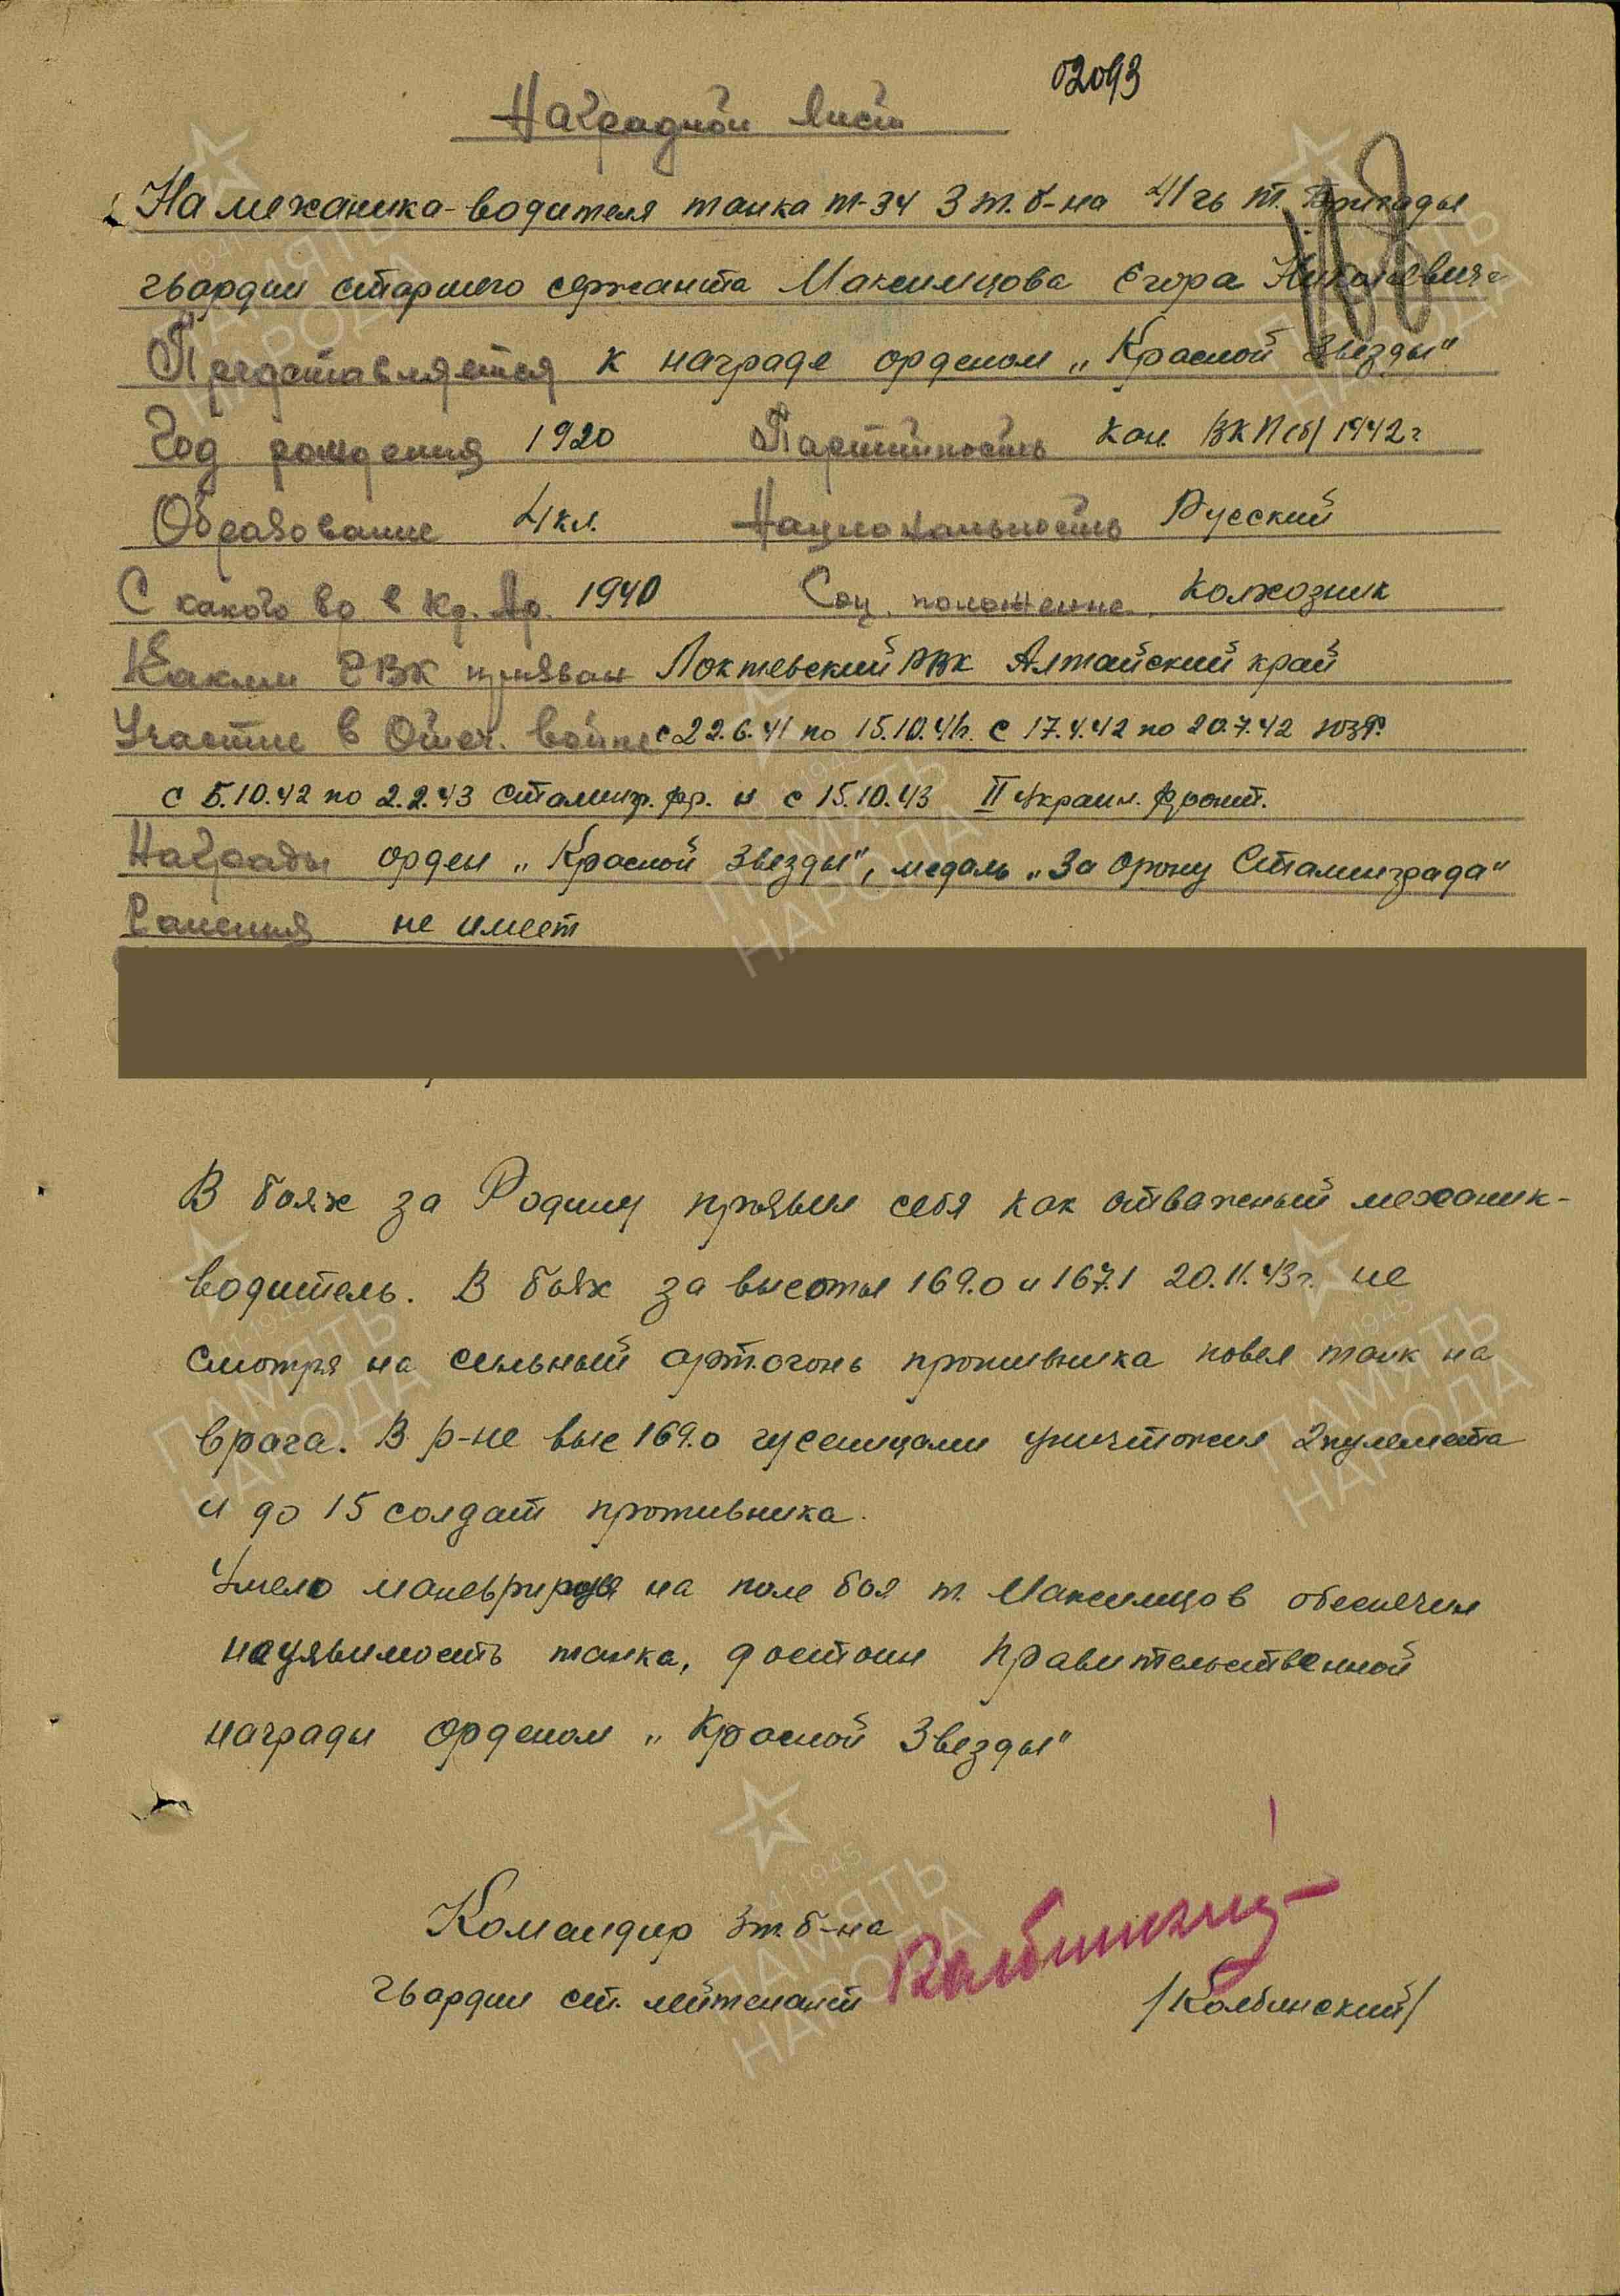 02093
Наградной лист
На механика-водителя танка т-34 3 т.б-на 41 гв т. бригады
гвардии старшего сержанта Максимцова Егора Николаевича
Представляется к награде орденом „Красной Звезды"
Год рождения 1920 Партийность кан. ВКП(б) 1942г
Образование 4 кл. Национальность Русский
С какого вр. в Кр. Ар. 1940 Соц. положение колхозник
Каким РВК призван Локтевский РВК Алтайский край
Участие в Отеч. войне с 22.6.41 по 15.10.41г. с 17.4.42 по 20.7.42 ЮЗФ.
с 5.10.42 по 2.2.43 Сталингр. фр. и с 15.10.43 II Украин. фронт.
Награды орден „Красной Звезды", медаль „За орону Сталинграда"
Ранения не имеет
В боях за Родину проявил себя как отважный механик-
водитель. В боях за высоты 169.0 и 167.1 20.11.43г. не
смотря на сильный арт.огонь противника повел танк на
врага. В р-не выс 169.0 гусеницами уничтожил 2 пулемета
и до 15 солдат противника.
Умело маневрируя на поле боя т. Максимцов обеспечил
неуязвимость танка, достоин правительственной
награды орденом „Красной Звезды"
Командир 3 т.б-на
гвардии ст. лейтенант Колбинский /Колбинский/
ПАМЯТЬ НАРОДА
1941 1945